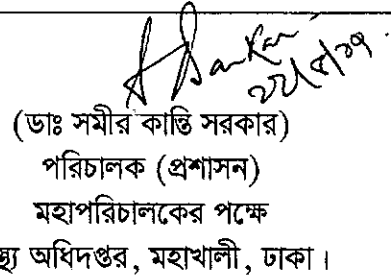 (ডাঃ সমীর কান্তি সরকার)
পরিচালক (প্রশাসন)
মহাপরিচালকের পক্ষে
অধিদপ্তর, মহাখালী, ঢাকা।